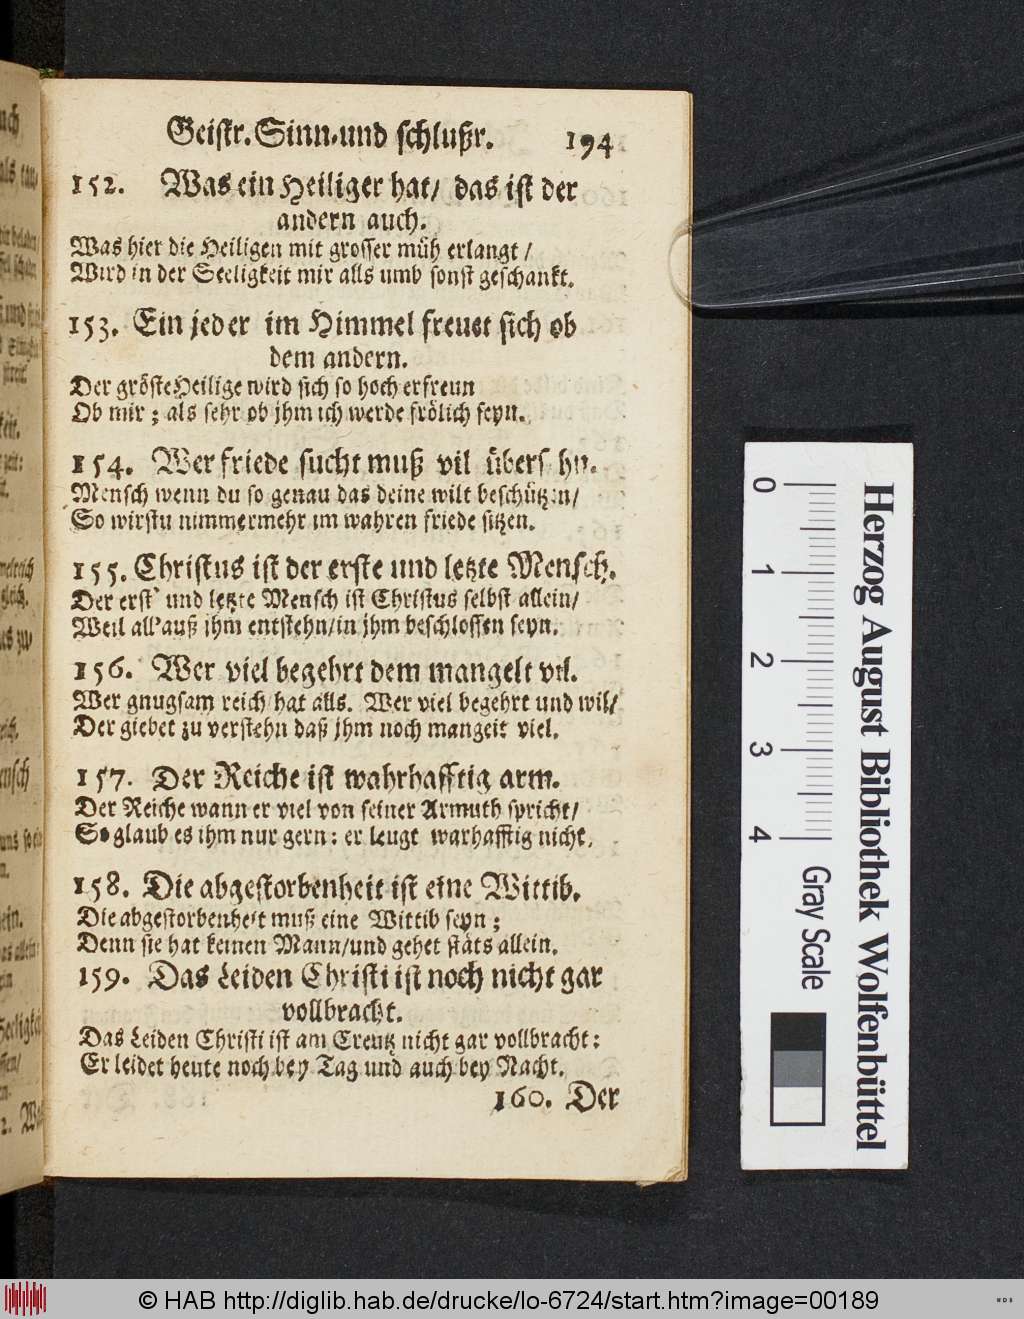 Geistr. Sinn-und schlußr. 194
152. Was ein Heiliger hat/ das ist der
andern auch.
Was hier die Heiligen mit grosser müh erlangt /
Wird in der Seeligkeit mir alls umb sonst geschankt.
153. Ein jeder im Himmel freuet sich ob
dem andern.
Der gröste Heilige wird sich so hoch erfreun
Ob mir ; als sehr ob jhm ich werde frölich seyn.
154. Wer friede sucht muß vil übers hn.
Mensch wenn du so genau das deine wilt beschützen/
So wirstu nimmermehr im wahren friede sitzen.
155. Christus ist der erste und letzte Mensch.
Der erst' und letzte Mensch ist Christus selbst allein/
Weil all' auß jhm entstehn/in jhm beschlossen seyn.
156. Wer viel begehrt dem mangelt vil.
Wer gnugsam reich hat alls. Wer viel begehrt und wil/
Der giebet zu verstehn daß jhm noch mangelt viel.
157. Der Reiche ist wahrhafftig arm.
Der Reiche wann er viel von seiner Armuth spricht/
So glaub es ihm nur gern : er leugt warhafftig nicht.
158. Die abgestorbenheit ist eine Wittib.
Die abgestorbenheit muß eine Wittib seyn ;
Denn sie hat keinen Mann/und gehet stäts allein.
159. Das Leiden Christi ist noch nicht gar
vollbracht.
Das Leiden Christi ist am Creutz nicht gar vollbracht :
Er leidet heute noch bey Tag und auch bey Nacht.
160. Der
0 1 2 3 4
Gray Scale
Herzog August Bibliothek Wolfenbüttel
© HAB http://diglib.hab.de/drucke/lo-6724/start.htm?image=00189